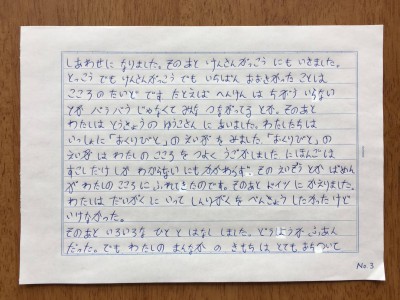 しあわせに なりました。そのあと けんさんがっこう にも いきました。
とっこう でも けんさんがっこう でも いちばん おおきかった ことは
こころの たいど です たとえば へんけんは ちがう いらない
とか バラバラ じゃなくて みんな つながってる とか。そのあと
わたしは とうきょうの ゆうこさんに あいました。わたしたちは
いっしょに 「おくりびと」の えいがを みました。「おくりびと」の
えいがは わたしの こころを つよく うごかしました にほんごは
すこしだけしか わからないにもかかわらず、その えいぞうとか ばめん
が わたしの こころに ふれてきたのです。そのあと ドイツに かえりました。
わたしは だいがくに いって しんりがくを べんきょう したかったけど
いけなかった。
そのあと いろいろな ひとと はなし しました。どうしようか ふあん
だった。でも わたしの まんなか の きもちは とても おちついて
No.3